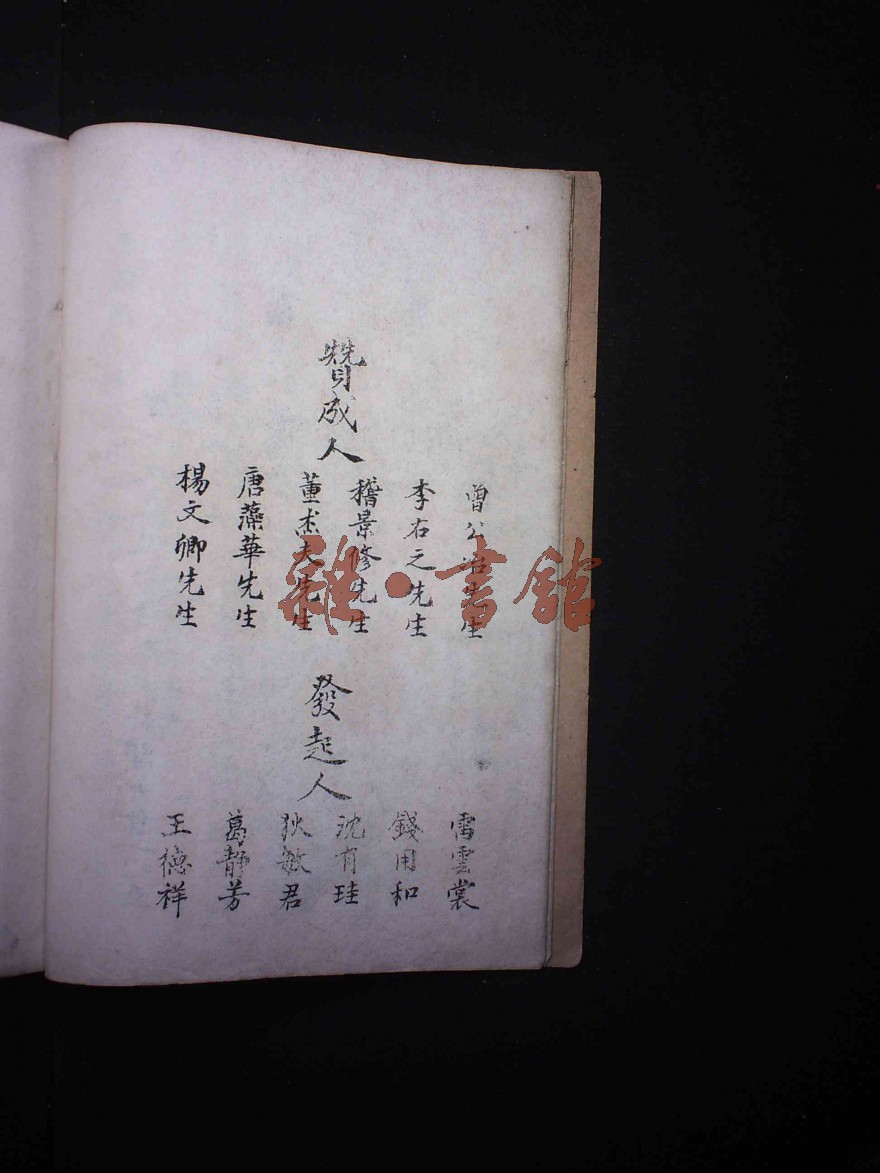 贊成人
曾公冶先生
李右之先生
稽景修先生
董杰夫先生
唐藻華先生
楊文卿先生
發起人
雷雲裳
錢用和
沈有珪
狄敏君
葛靜芳
王德祥
雜·書館